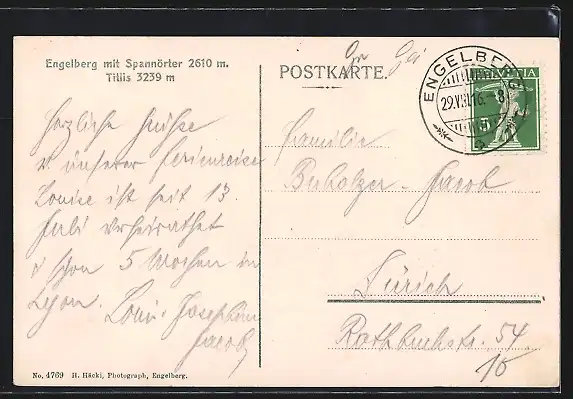 Engelberg mit Spannörter 2610 m.
Titlis 3239 m
POSTKARTE.
ENGELBERG
29.VIII.16.-8
HELVETIA
5
Herzliche Grüsse
v. unserer Ferienreise
Louise ist seit 13
Juli verheirathet
u schon 5 Wochen in
Lyon.
Louis Josephine
Jacob
Familie
Bucholzer-Jacob
Zürich
Rothbuchstr. 54.
10
No. 4769 H. Häcki, Photograph, Engelberg.